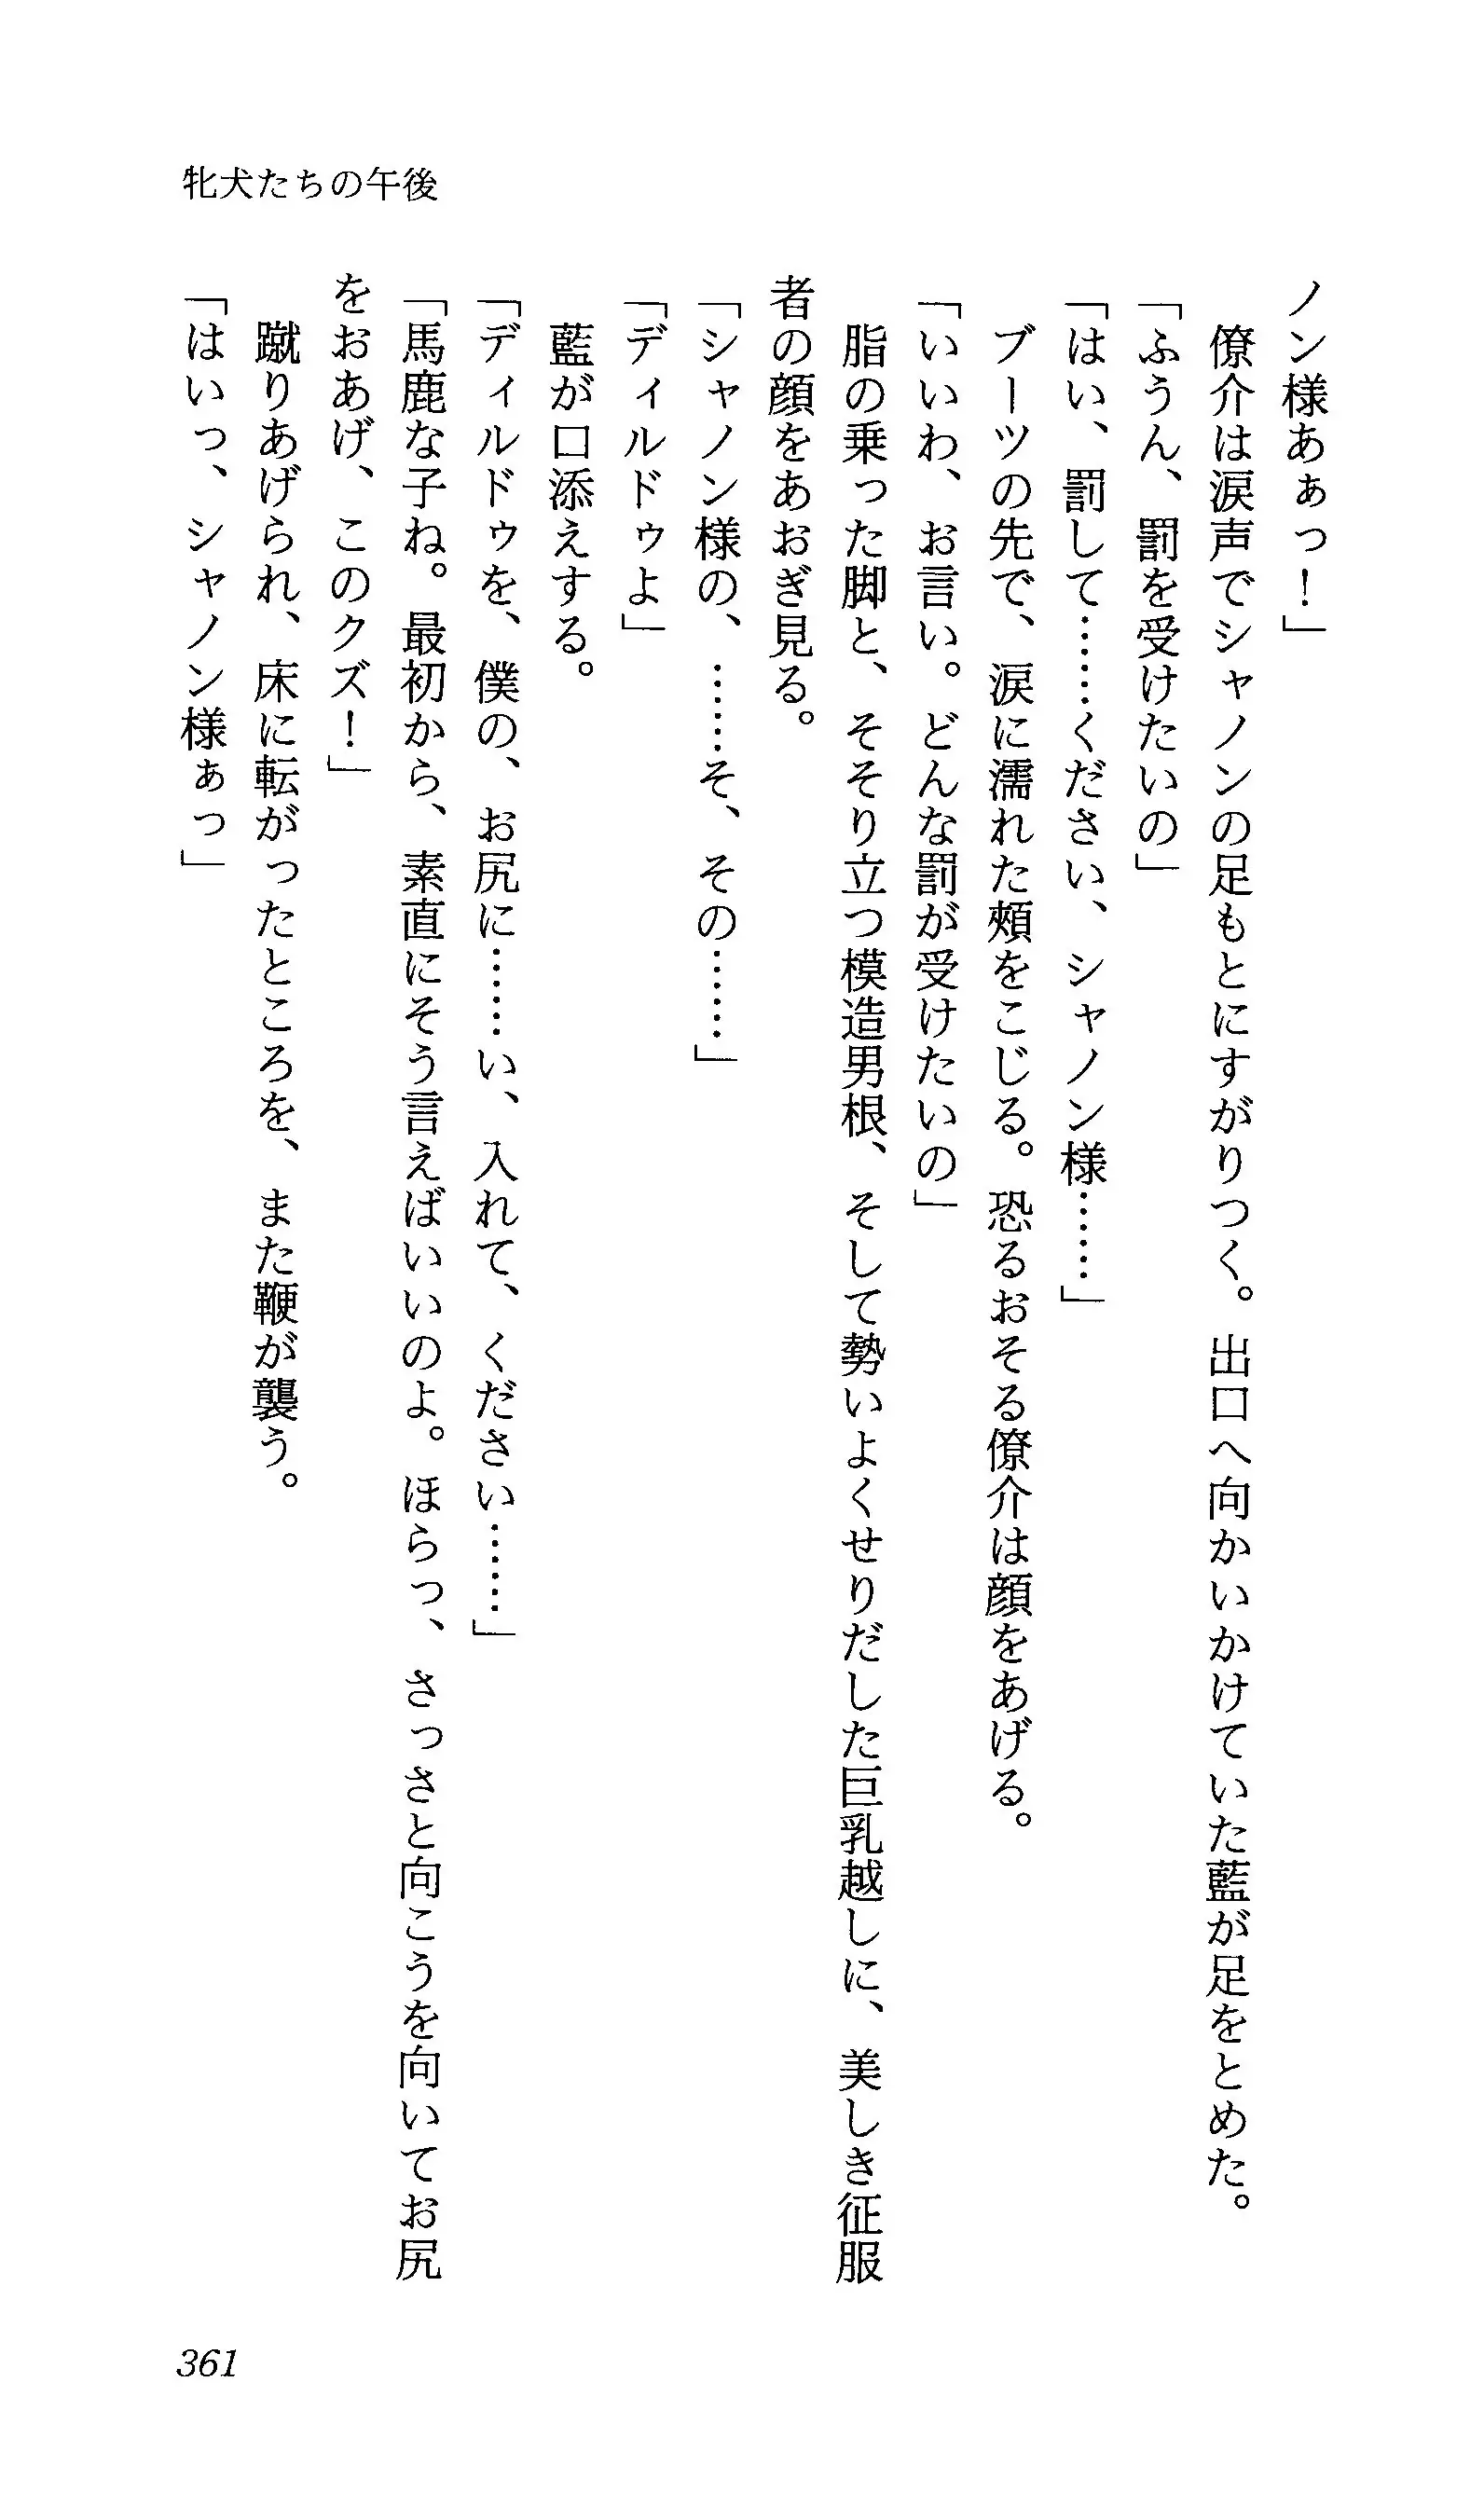 牝犬たちの午後
ノン様あぁっ！」
僚介は涙声でシャノンの足もとにすがりつく。出口へ向かいかけていた藍が足をとめた。
「ふうん、罰を受けたいの」
「はい、罰して……ください、シャノン様……」
ブーツの先で、涙に濡れた頰をこじる。恐るおそる僚介は顔をあげる。
「いいわ、お言い。どんな罰が受けたいの」
脂の乗った脚と、そそり立つ模造男根、そして勢いよくせりだした巨乳越しに、美しき征服
者の顔をあおぎ見る。
「シャノン様の、……そ、その……」
「ディルドゥよ」
藍が口添えする。
「ディルドゥを、僕の、お尻に……い、入れて、ください……」
「馬鹿な子ね。最初から、素直にそう言えばいいのよ。ほらっ、さっさと向こうを向いてお尻
をおあげ、このクズ！」
蹴りあげられ、床に転がったところを、また鞭が襲う。
「はいっ、シャノン様ぁっ」
361